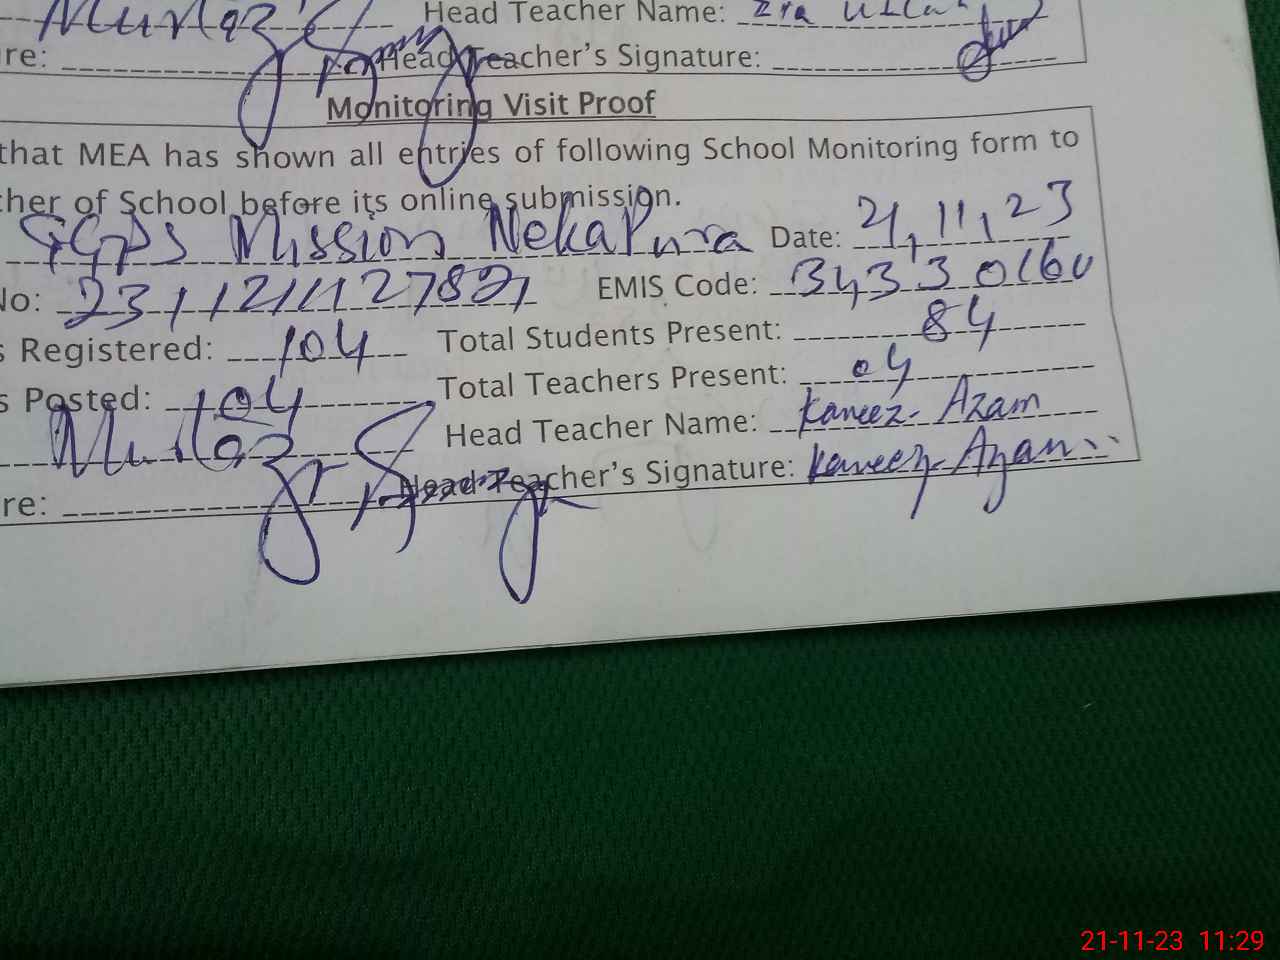 Mumtaz Head Teacher Name: Zra Ulla
re: Head Teacher's Signature:
Monitoring Visit Proof
that MEA has shown all entries of following School Monitoring form to
her of School before its online submission.
GGPS Mission NekaPura Date: 21,11,23
No: EMIS Code: 34330160
s Registered: 104 Total Students Present: 84
s Posted: 04 Total Teachers Present: 04
Mumtaz Head Teacher Name: Kaneez Azam
re: Head Teacher's Signature: Kaneez Azam
21-11-23 11:29